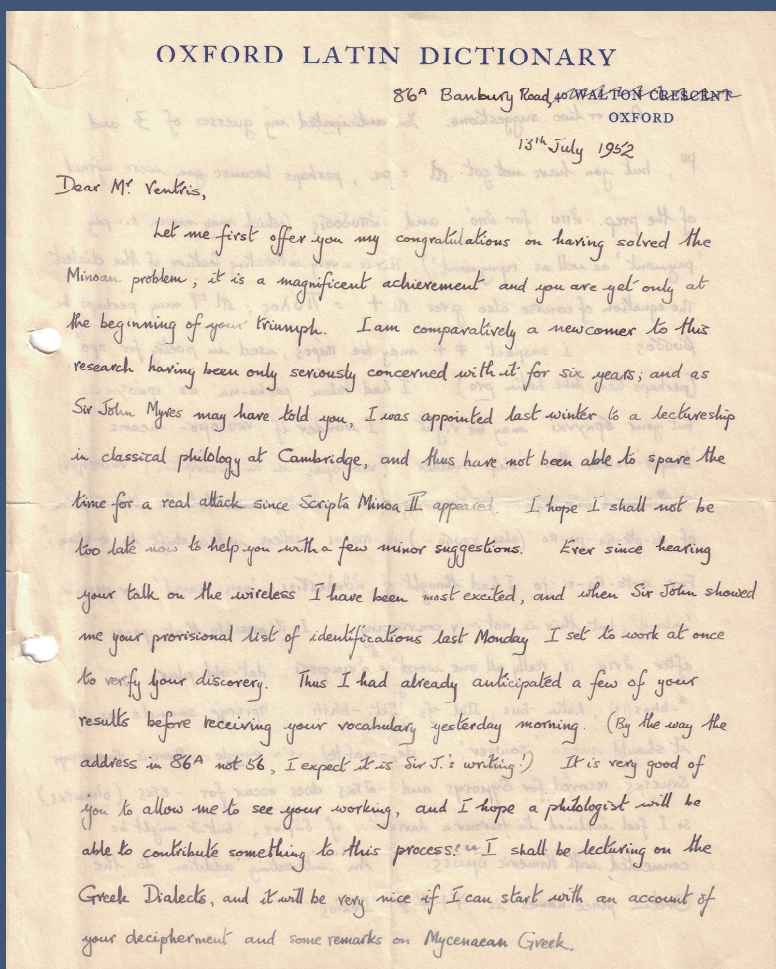 OXFORD LATIN DICTIONARY
86A Banbury Road, 40 WALTON CRESCENT
OXFORD
13th July 1952
Dear Mr Ventris,
Let me first offer you my congratulations on having solved the
Minoan problem; it is a magnificent achievement and you are yet only at
the beginning of your triumph. I am comparatively a newcomer to this
research having been only seriously concerned with it for six years; and as
Sir John Myres may have told you, I was appointed last winter to a lectureship
in classical philology at Cambridge, and thus have not been able to spare the
time for a real attack since Scripta Minoa II appeared. I hope I shall not be
too late now to help you with a few minor suggestions. Ever since hearing
your talk on the wireless I have been most excited, and when Sir John showed
me your provisional list of identifications last Monday I set to work at once
to verify your discovery. Thus I had already anticipated a few of your
results before receiving your vocabulary yesterday morning. (By the way the
address in 86A not 56, I expect it is Sir J.'s writing!) It is very good of
you to allow me to see your working, and I hope a philologist will be
able to contribute something to this process. I shall be lecturing on the
Greek Dialects, and it will be very nice if I can start with an account of
your decipherment and some remarks on Mycenaean Greek.